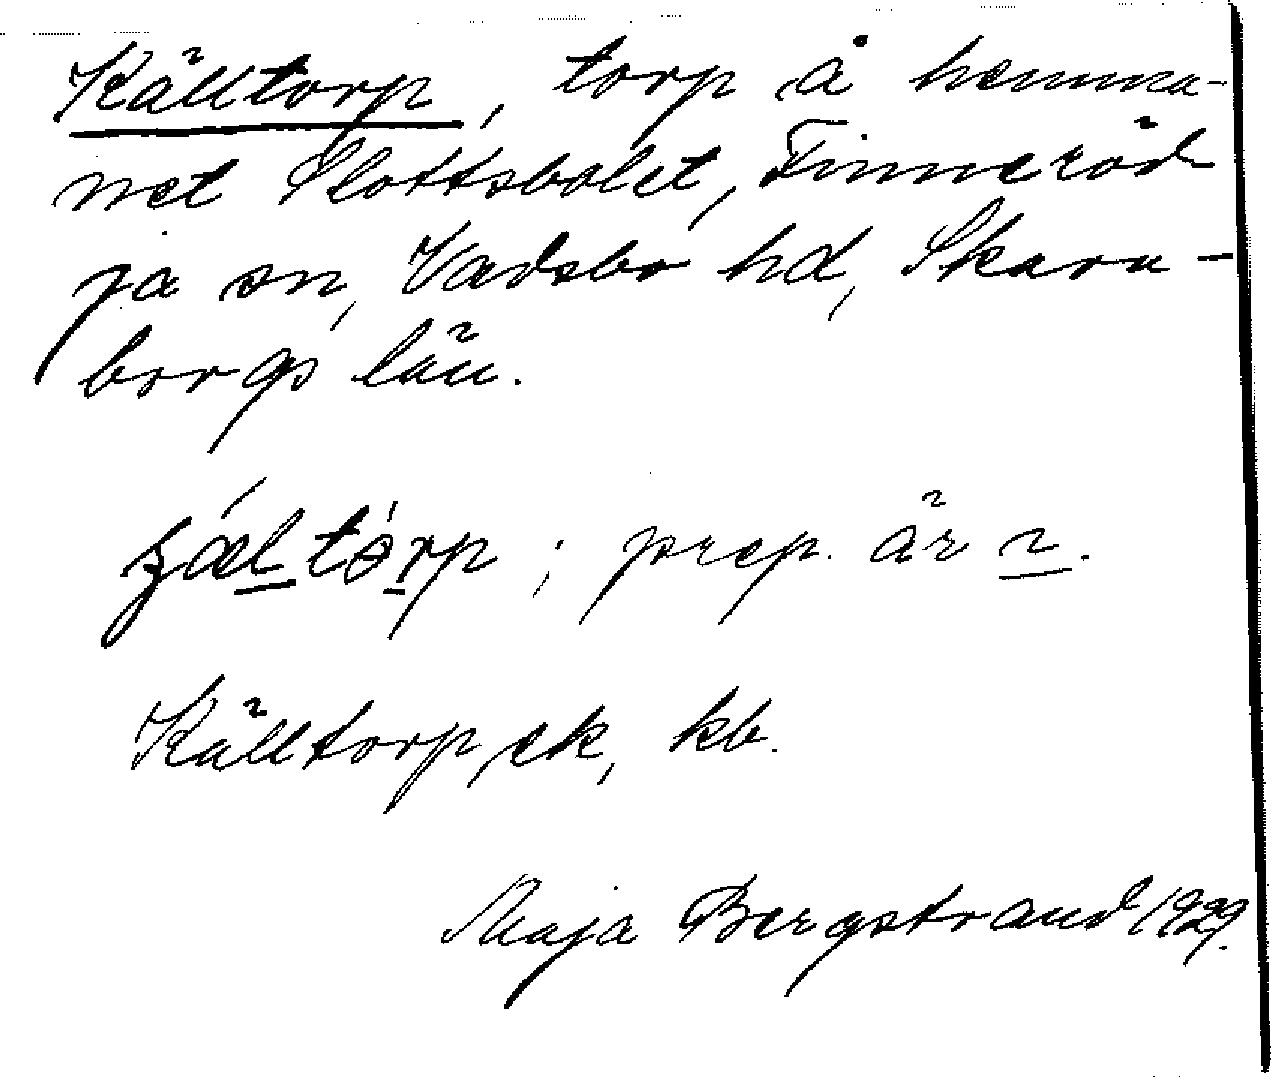 Källtorp, torp å hemma-
net Slottsbolet, Finneröd
ja sn, Vadsbo hd, Skara-
borgs län.
; prep. är
Källtorp, ek, kb.
Maja Bergstrand 1929.